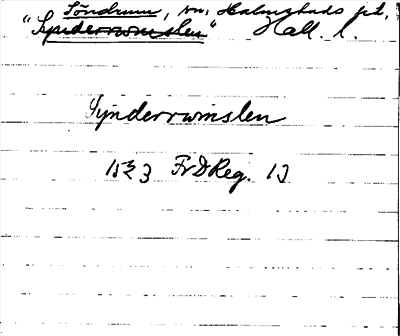 Söndrum, sn, Halmstads hd,
"Synderrumslen" Hall. l.
Synderrwmslen
1523 FrDReg. 13